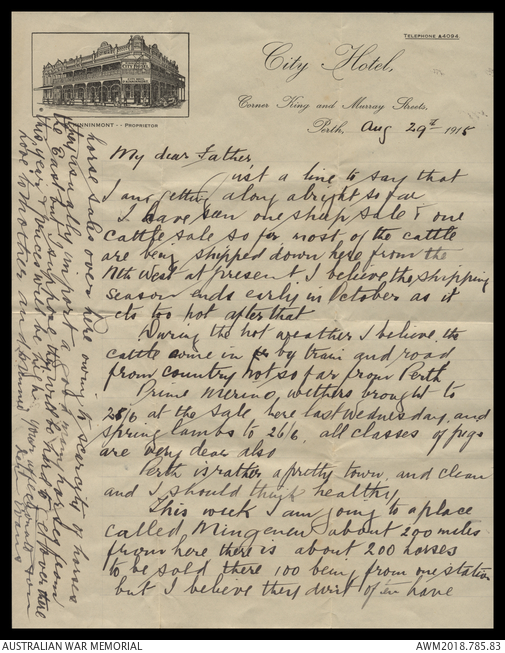 TELEPHONE A4094
City Hotel,
Corner King and Murray Streets,
Perth, Aug 29th 1915
PROPRIETOR
My dear Father,
Just a line to say that
I am getting along alright so far
I have seen one sheep sale & one
cattle sale so far most of the cattle
are being shipped down here from the
Nth West at present, I believe the shipping
season ends early in October as it
is too hot after that
During the hot weather I believe the
cattle come in by train and road
from country not so far from Perth
Prime Merino, wethers brought to
28/6 at the sale here last Wednesday, and
spring lambs to 26/6, all classes of pigs
are very dear also
Perth is rather a pretty town, and clean
and I should think healthy,
This week I am going to a place
called Mingenew about 200 miles
from here there is about 200 horses
to be sold there 100 being from one station
but I believe they don't often have
horse sales over here owing to scarcity of horses
they usually import a good many horses from
the East but I suppose they will be hard to get over there
this year & prices will be high.
love to Mother and
your affectionate son